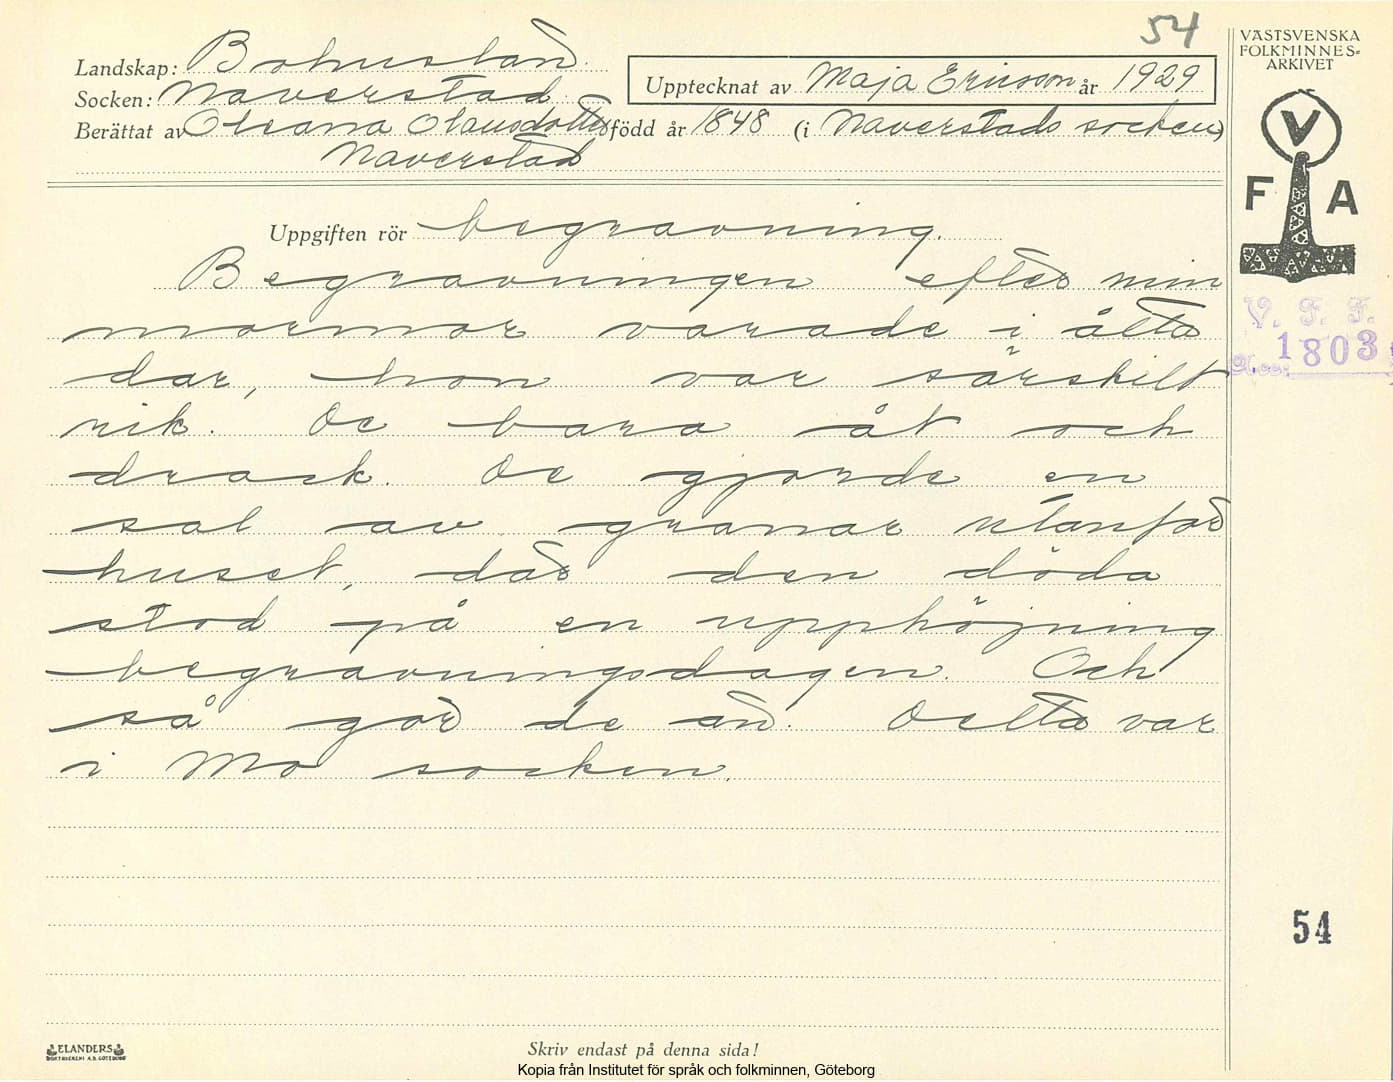 54
Landskap: Bohuslän
Socken: Naverstad
Upptecknat av Maja Ericsson år 1929
Berättat av Oleana Olausdotter född år 1848 (i Naverstads socken)
Naverstad
VÄSTSVENSKA
FOLKMINNES-
ARKIVET
V
F A
V. F. F.
1803
Uppgiften rör begravning.
Begravningen efter min
mormor varade i åtta
dar, hon var särskilt
rik. De bara åt och
drack. De gjorde en
sal av granar utanför
huset, där den döda
stod på en upphöjning
begravningsdagen. Och
så gör de än. Detta var
i Mo socken.
54
ELANDERS
Skriv endast på denna sida!
Kopia från Institutet för språk och folkminnen, Göteborg